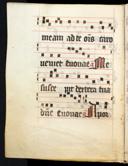 meam ad te ois caro
ueniet euouae Me
suscepit dextera tua
dne euouae